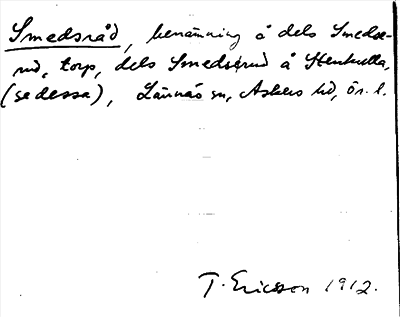 Smedsråd, benämning å dels Smedse-
rud, torp, dels Smedserud å Stenkulla,
(se dessa), Lännäs sn, Askers hd, Ör. l.
T. Ericsson 1912.